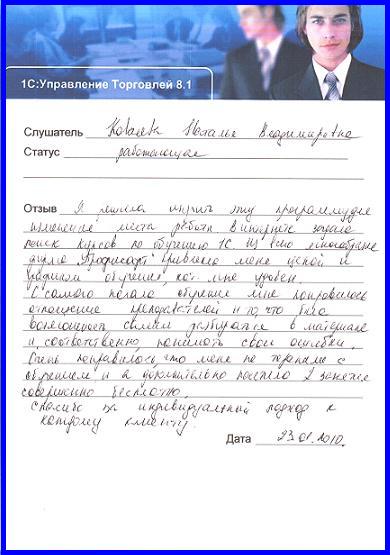 1С:Управление Торговлей 8.1
Слушатель Ковалева Наталья Владимировна
Статус работающая
Отзыв Я решила изучить эту программу для
изменения места работы. В интернете задала
поиск курсов по обучению 1С. Из всего
фирма привлекла меня ценой и
графиком обучения, кот. мне удобен.
С самого начала обучения мне понравилось
отношение преподавателей и то, что была
возможность самим разбираться в материале
и, соответственно, понимать свои ошибки.
Очень понравилось, что меня не торопили с
обучением и я дополнительно посетила 2 занятия
совершенно бесплатно.
Спасибо за индивидуальный подход к
каждому клиенту.
Дата 23.01.2010.